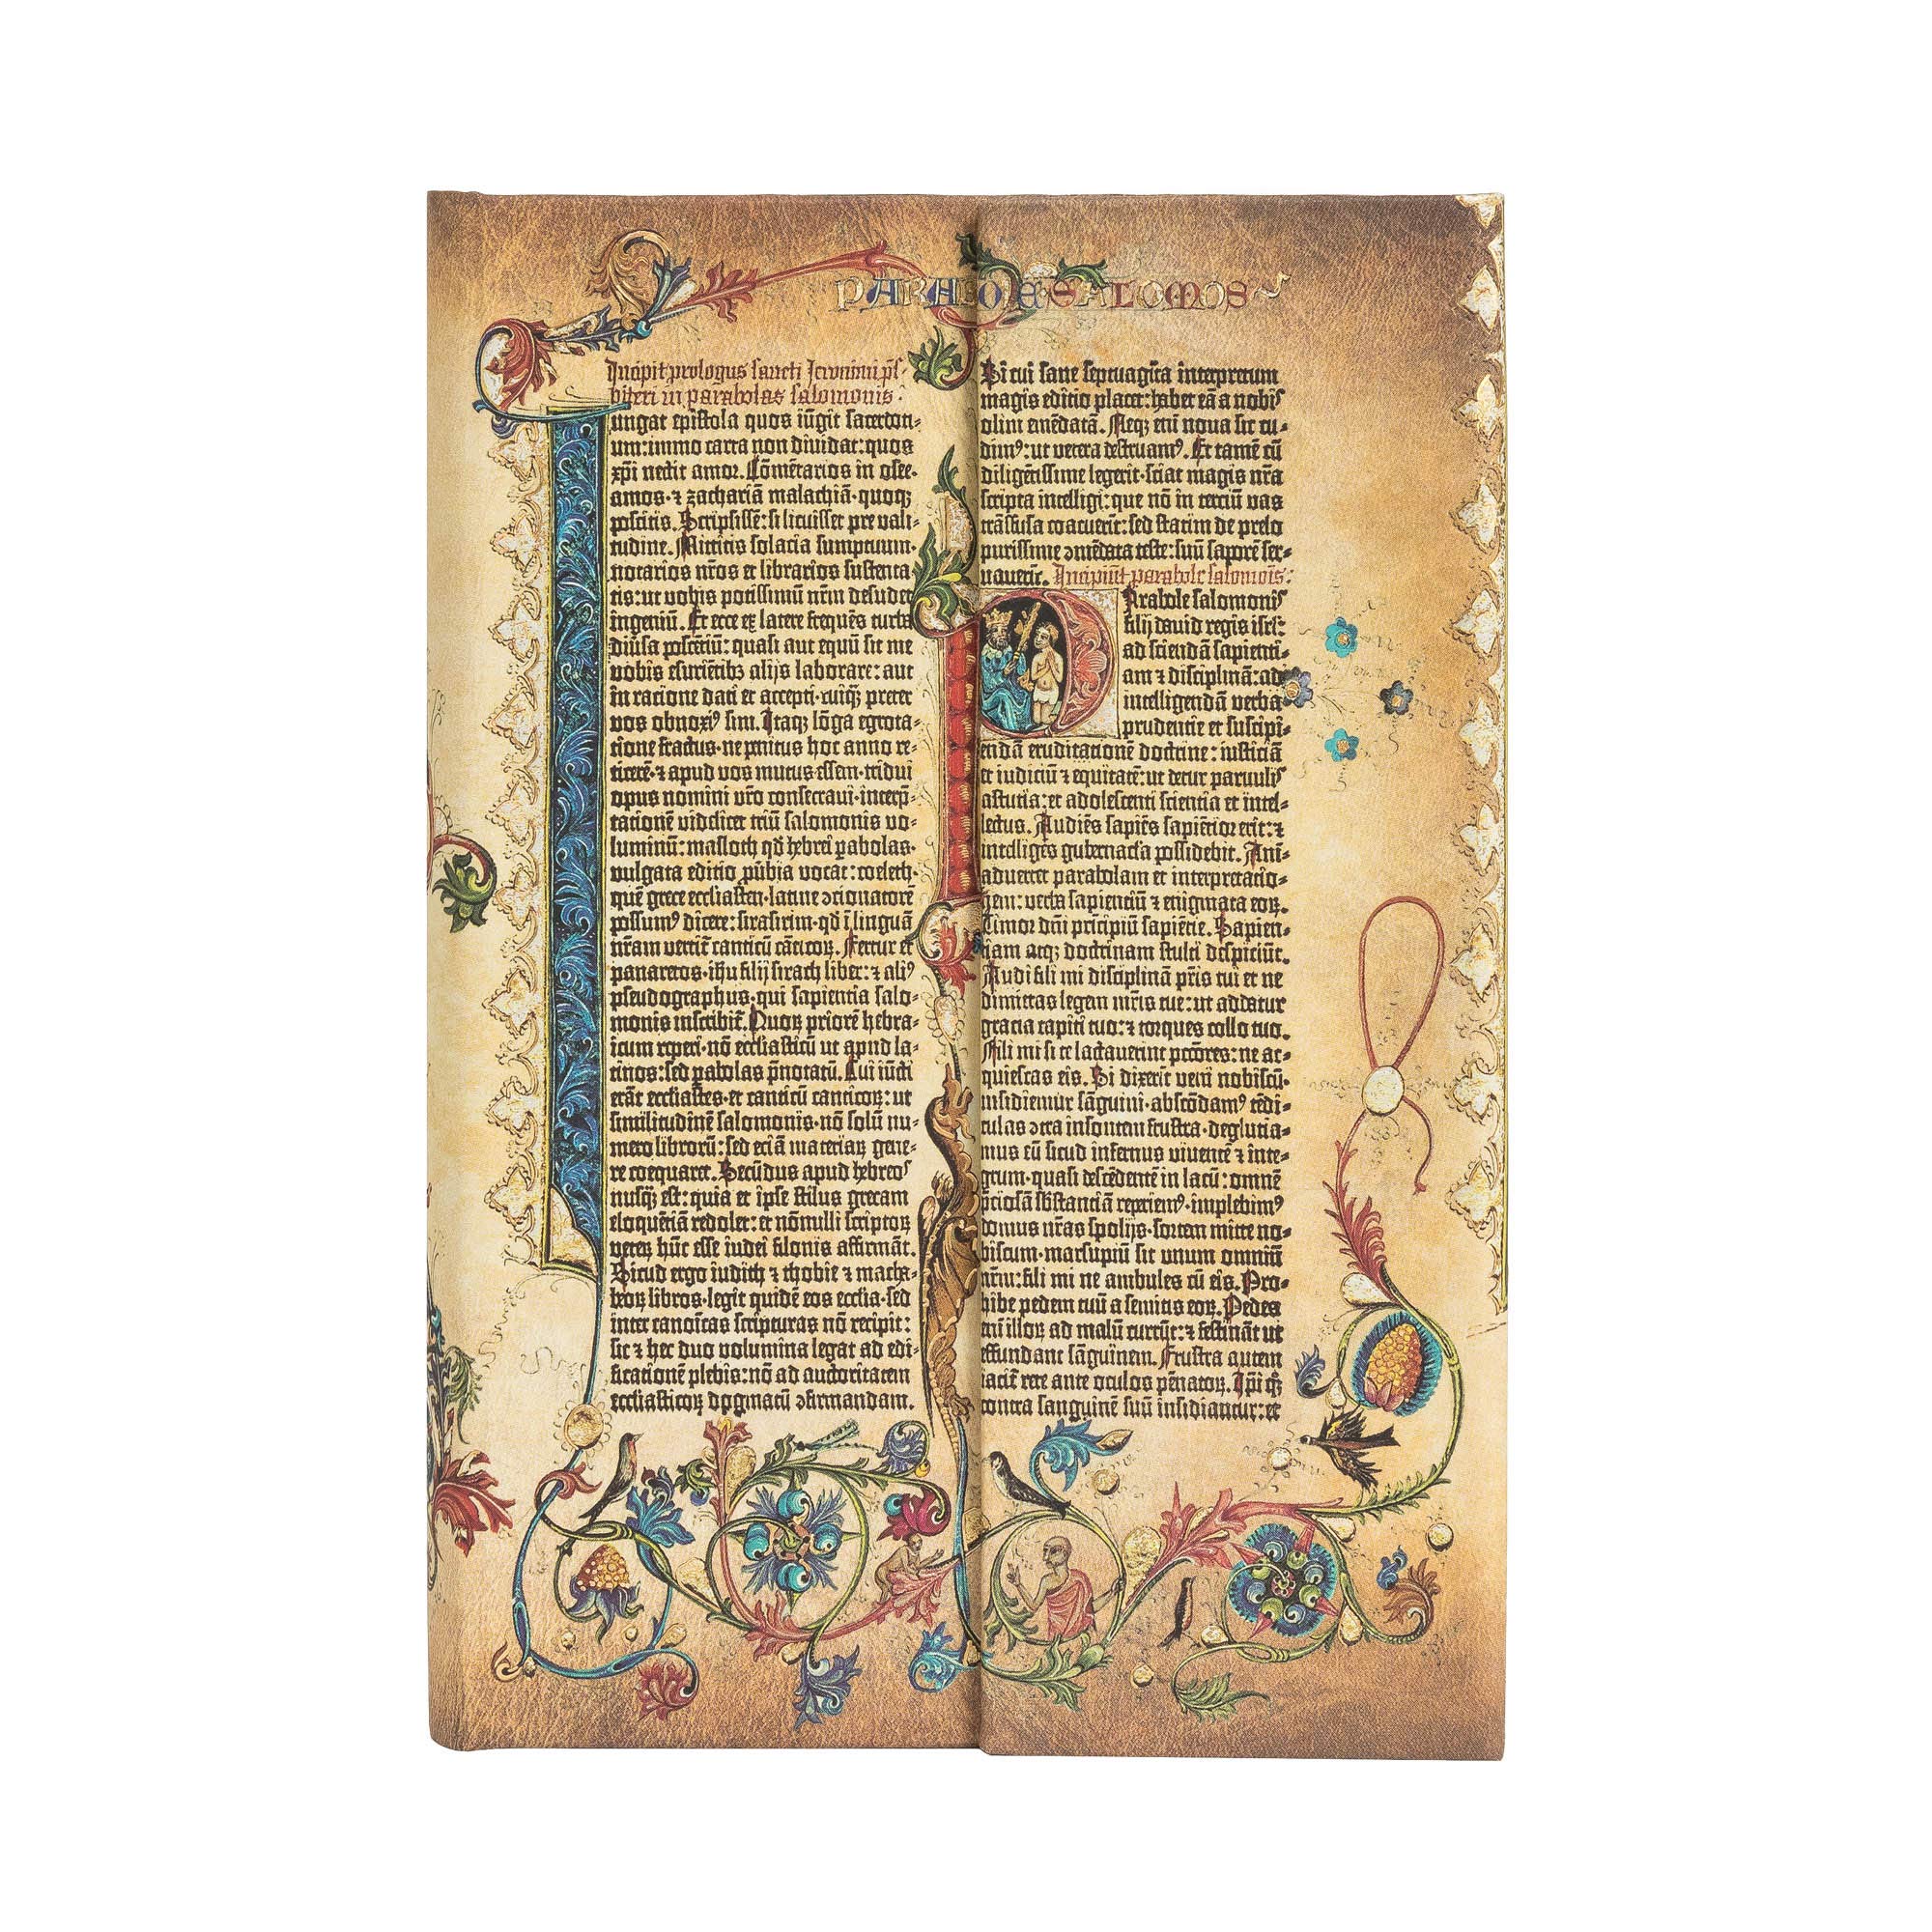 PARABOLE SALOMOS
Incipit prologus sancti Ieronimi p̄s-
biteri in parabolas salomonis.
Iungat epistola quos iūgit sacerdoti-
um: immo carta non dividat: quos
xp̄i nectit amor. Cōmētarios in osee.
amos. ⁊ zachariā malachiā. quoqȝ
poscitis. Scripsissē: si licuisset pre vali-
tudine. Mittitis solacia sumptuum.
notarios nr̄os et librarios sustenta-
tis: ut vobis potissimū nr̄m desudet
ingeniū. Et ecce ex latere frequēs turba
diūsa poscētiū: quasi aut equū sit me
vobis esuriētibȝ alijs laborare: aut
in racione dati et accepti. cuiqȝ preter
vos obnoxiꝰ sim. Itaqȝ lōga egrota-
tione fractus. ne penitus hoc anno re-
ticerē. ⁊ apud vos mutus essem. tridui
opus nomini vr̄o consecraui. interp̄-
tationē videlicet triū salomonis vo-
luminū: masloth qd̄ hebrei ꝑabolas.
vulgata editio ꝓūbia vocat: coeleth.
quē grece ecclīasten. latine ↄcionatorē
possumꝰ dicere: sirasirim. qd̄ ī linguā
nr̄am vertit̄ canticū cāticoꝝ. Fertur et
panaretos. ih̄u filij sirach liber: ⁊ aliꝰ
pseudographus. qui sapientia salo-
monis inscribit̄. Quoꝝ priorē hebra-
icum reperi. nō eccl̄iasticū ut apud la-
tinos: sed ꝑabolas p̄notatū. Cui iūcti
erāt eccl̄iastes. et canticū canticoꝝ: ut
similitudinē salomonis. nō solū nu-
mero librorū: sed eciā materiaꝝ gene-
re coequaret. Secūdus apud hebreos
nusqȝ est: quia et ipse stilus grecam
eloquētiā redolet: et nōnulli scriptoꝝ
veteꝝ hūc esse iudei filonis affirmāt.
Sicud ergo iudith ⁊ thobie ⁊ macha-
beoꝝ libros. legit quidē eos eccl̄ia. sed
inter canoīcas scripturas nō recipit:
sic ⁊ hec duo volumina legat ad edi-
ficationē plebis: nō ad auctoritatem
eccl̄iasticoꝝ dogmatū ↄfirmandam.
Si cui sane septuagīta interpretum
magis editio placet: habet eā a nobis
olim emēdatā. Neqȝ em̄ nova sic cu-
dimꝰ: ut vetera destruamꝰ. Et tamē cū
diligētissime legerit. sciat magis nr̄a
scripta intelligi: que nō in terciū vas
trāsfusa coacuerīt: sed statim de prelo
purissime ↄmēdata teste: suū saporē ser-
vaverīt. Incipiūt parabole salomōis:
Parabole salomonis
filij david regis isrl̄:
ad sciendā sapienti-
am ⁊ disciplinā: ad
intelligendā verba
prudentie et suscipi-
endā eruditationē doctrine: iusticiā
et iudiciū ⁊ equitatē: ut detur parvulis
astutia: et adolescenti scientia et intel-
lectus. Audiēs sapiēs sapiētior erit: ⁊
intelligēs gubernacl̄a possidebit. Ani-
advertet parabolam et interpretatio-
nem: verba sapientiū ⁊ enigmata eoꝝ.
Timor dn̄i prīcipiū sapiētie. Sapien-
tiam atqȝ doctrinam stulti despiciūt.
Audi fili mi disciplinā pr̄is tui et ne
dimittas legem mr̄is tue: ut addatur
gracia capiti tuo: ⁊ torques collo tuo.
Fili mi si te lactaverint pctōres: ne ac-
quiescas eis. Si dixerīt veni nobiscū.
insidiemur sāguini. abscōdamꝰ tēdi-
culas ↄtra insontem frustra. deglutia-
mus eū sicud infernus viventē ⁊ inte-
grum. quasi descēdentē in lacū: omnē
p̄ciosā sb̄stantiā reperiemꝰ. implebimꝰ
domus nr̄as spolijs. sortem mitte no-
biscum. marsupiū sit unum omniū
nr̄m: fili mi ne ambules cū eis. Pro-
hibe pedem tuū a semitis eoꝝ. Pedes
em̄ illoꝝ ad malū currūt: ⁊ festināt ut
effundant sāguinem. Frustra autem
iacit̄ rete ante oculos pēnatoꝝ. Ip̄i qȝ
contra sanguinē suū insidiantur: et